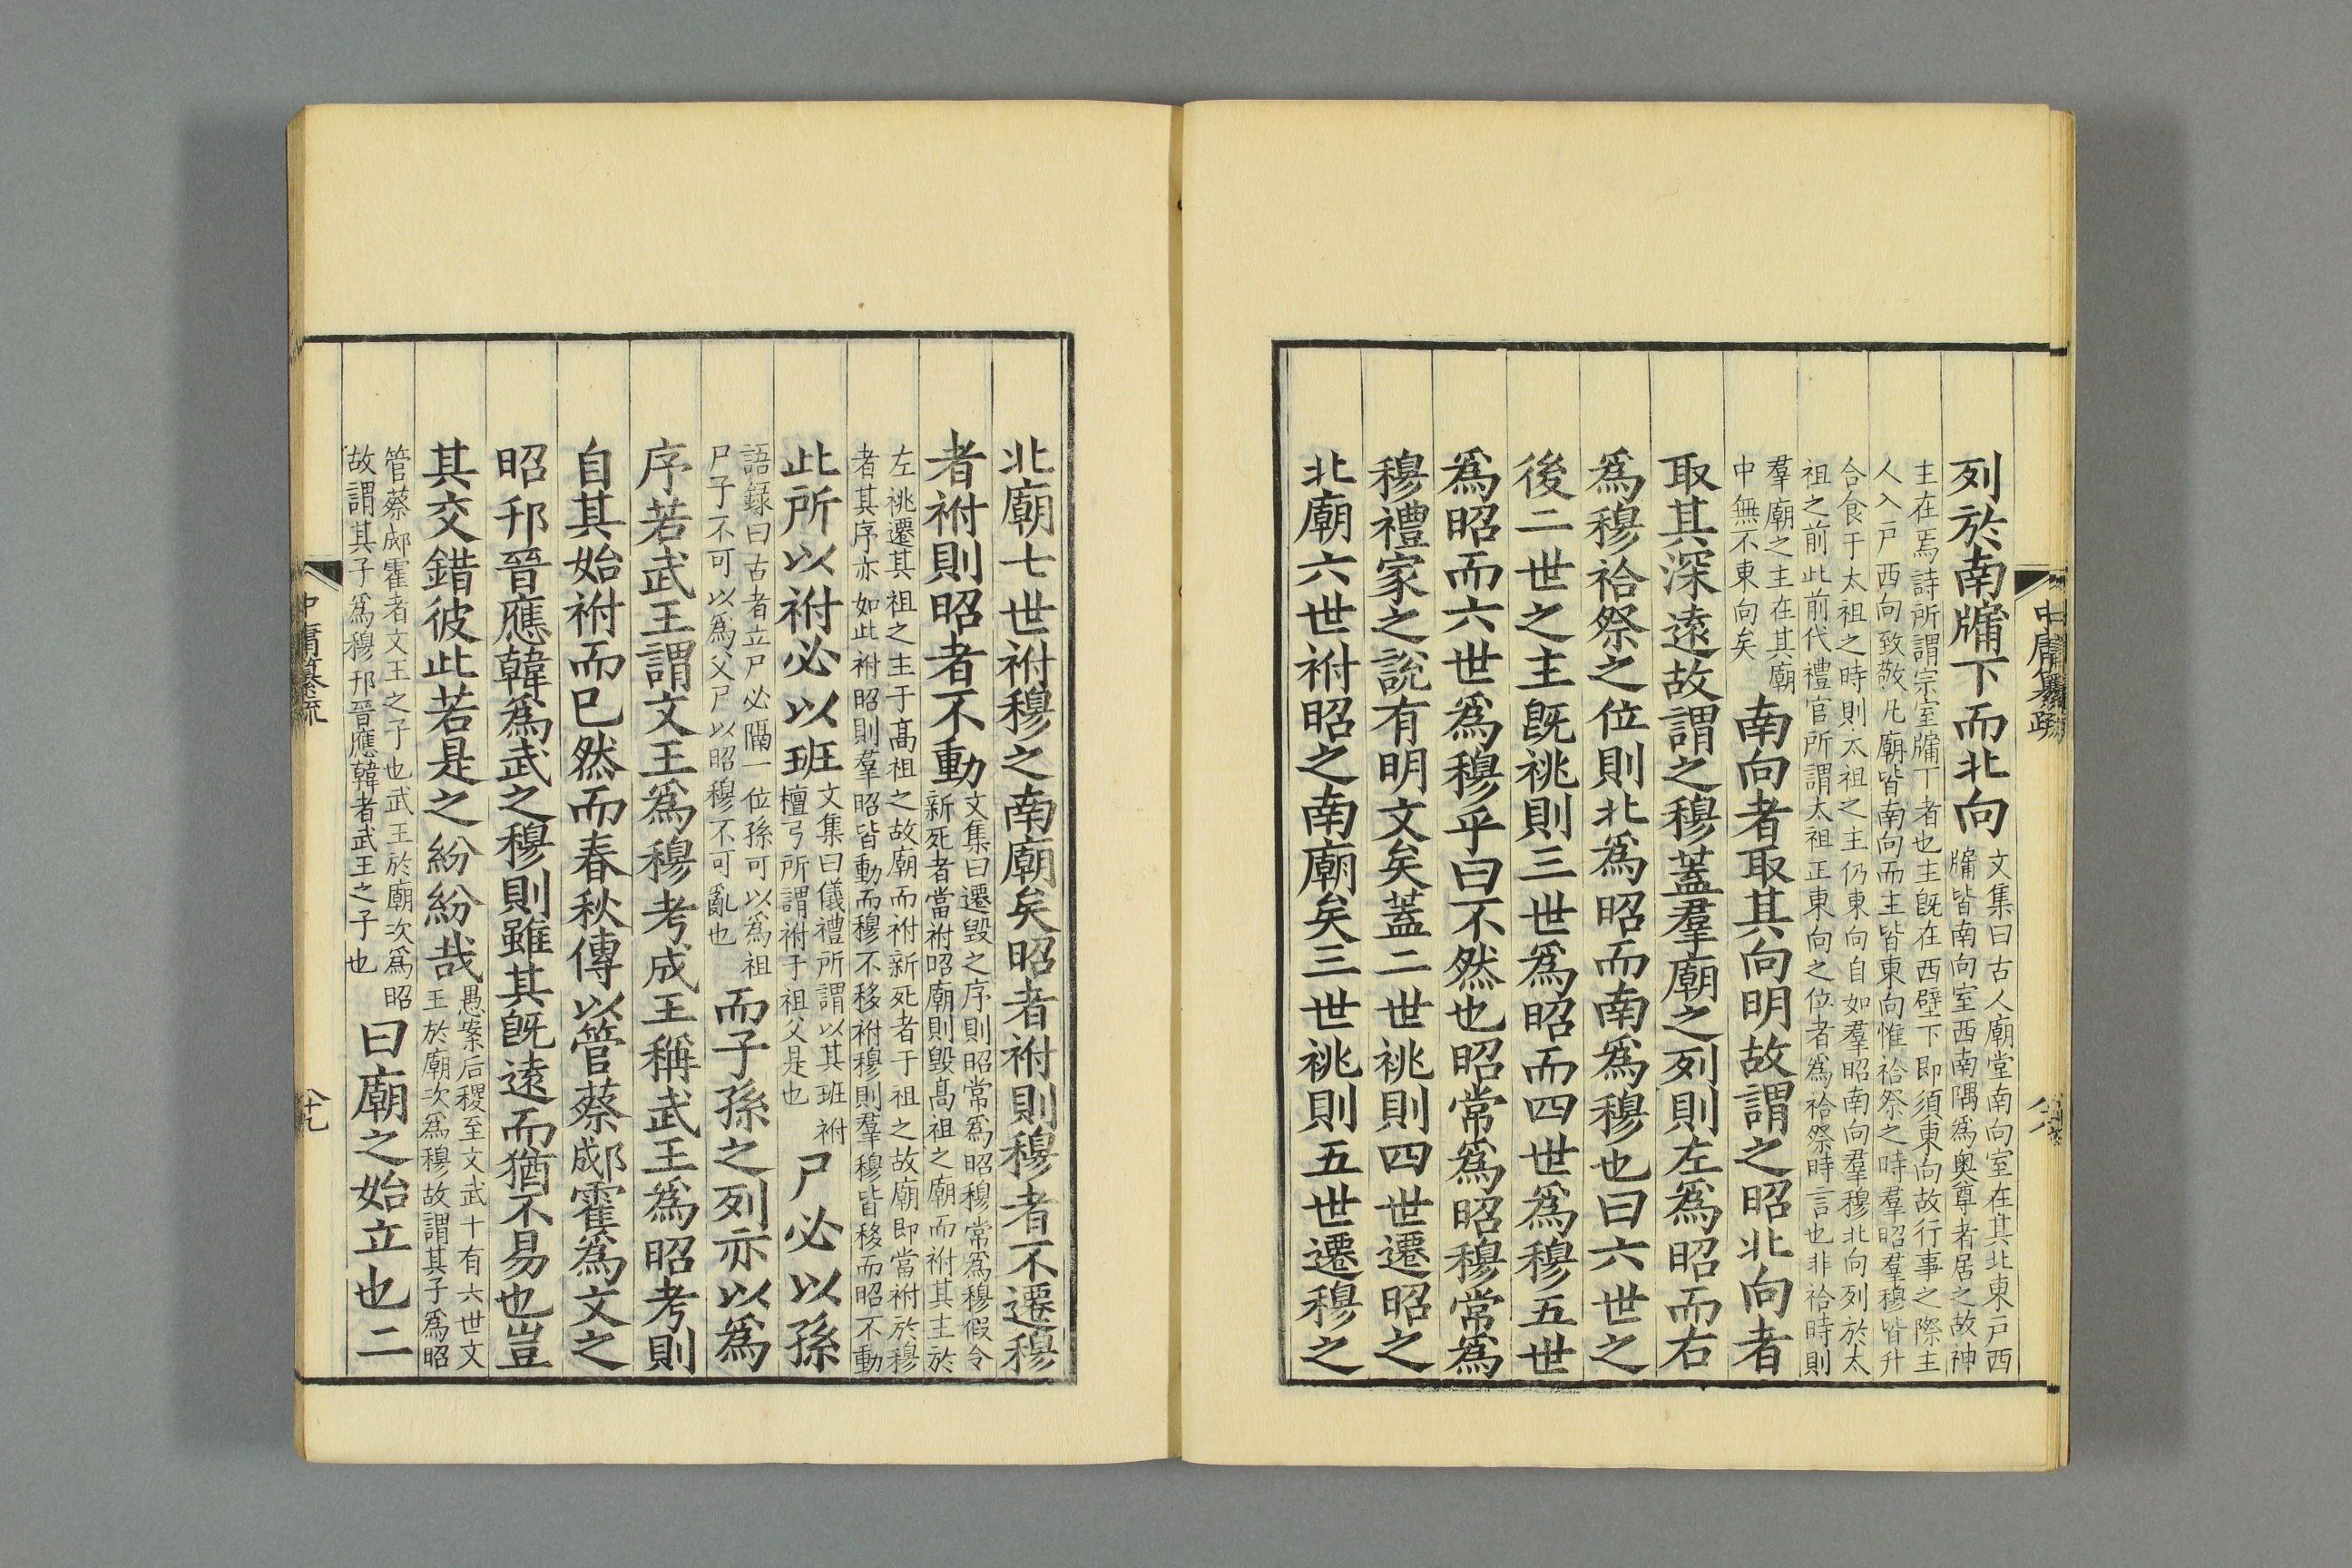 列於南牖下而北向
文集曰古人廟堂南向室在其北東戸西
牖皆南向室西南隅爲奥尊者居之故神
主在焉詩所謂宗室牖下者也主旣在西壁下即須東向故行事之際主
人入戸西向致敬凡廟皆南向而主皆東向惟祫祭之時羣昭羣穆皆升
合食于太祖之時則太祖之主仍東向自如羣昭南向羣穆北向列於太
祖之前此前代禮官所謂太祖正東向之位者爲祫祭時言也非祫時則
羣廟之主在其廟
中無不東向矣
南向者取其向明故謂之昭北向者
取其深遠故謂之穆蓋羣廟之列則左爲昭而右
爲穆祫祭之位則北爲昭而南爲穆也曰六世之
後二世之主旣祧則三世爲昭而四世爲穆五世
爲昭而六世爲穆乎曰不然也昭常爲昭穆常爲
穆禮家之說有明文矣蓋二世祧則四世遷昭之
北廟六世祔昭之南廟矣三世祧則五世遷穆之
中庸纂疏
北廟七世祔穆之南廟矣昭者祔則穆者不遷穆
者祔則昭者不動
文集曰遷毀之序則昭常爲昭穆常爲穆假令
新死者當祔昭廟則毀髙祖之廟而祔其主於
左祧遷其祖之主于髙祖之故廟而祔新死者于祖之故廟即當祔於穆
者其序亦如此祔昭則羣昭皆動而穆不移祔穆則羣穆皆移而昭不動
此所以祔必以班
文集曰儀禮所謂以其班祔
檀弓所謂祔于祖父是也
尸必以孫
語録曰古者立尸必隔一位孫可以爲祖
尸子不可以爲父尸以昭穆不可亂也
而子孫之列亦以爲
序若武王謂文王爲穆考成王稱武王爲昭考則
自其始祔而已然而春秋傳以管蔡郕霍爲文之
昭邘晉應韓爲武之穆則雖其旣遠而猶不易也豈
其交錯彼此若是之紛紛哉
愚案后稷至文武十有六世文
王於廟次爲穆故謂其子爲昭
管蔡郕霍者文王之子也武王於廟次爲昭
故謂其子爲穆邘晉應韓者武王之子也
曰廟之始立也二
中庸纂疏
八十九